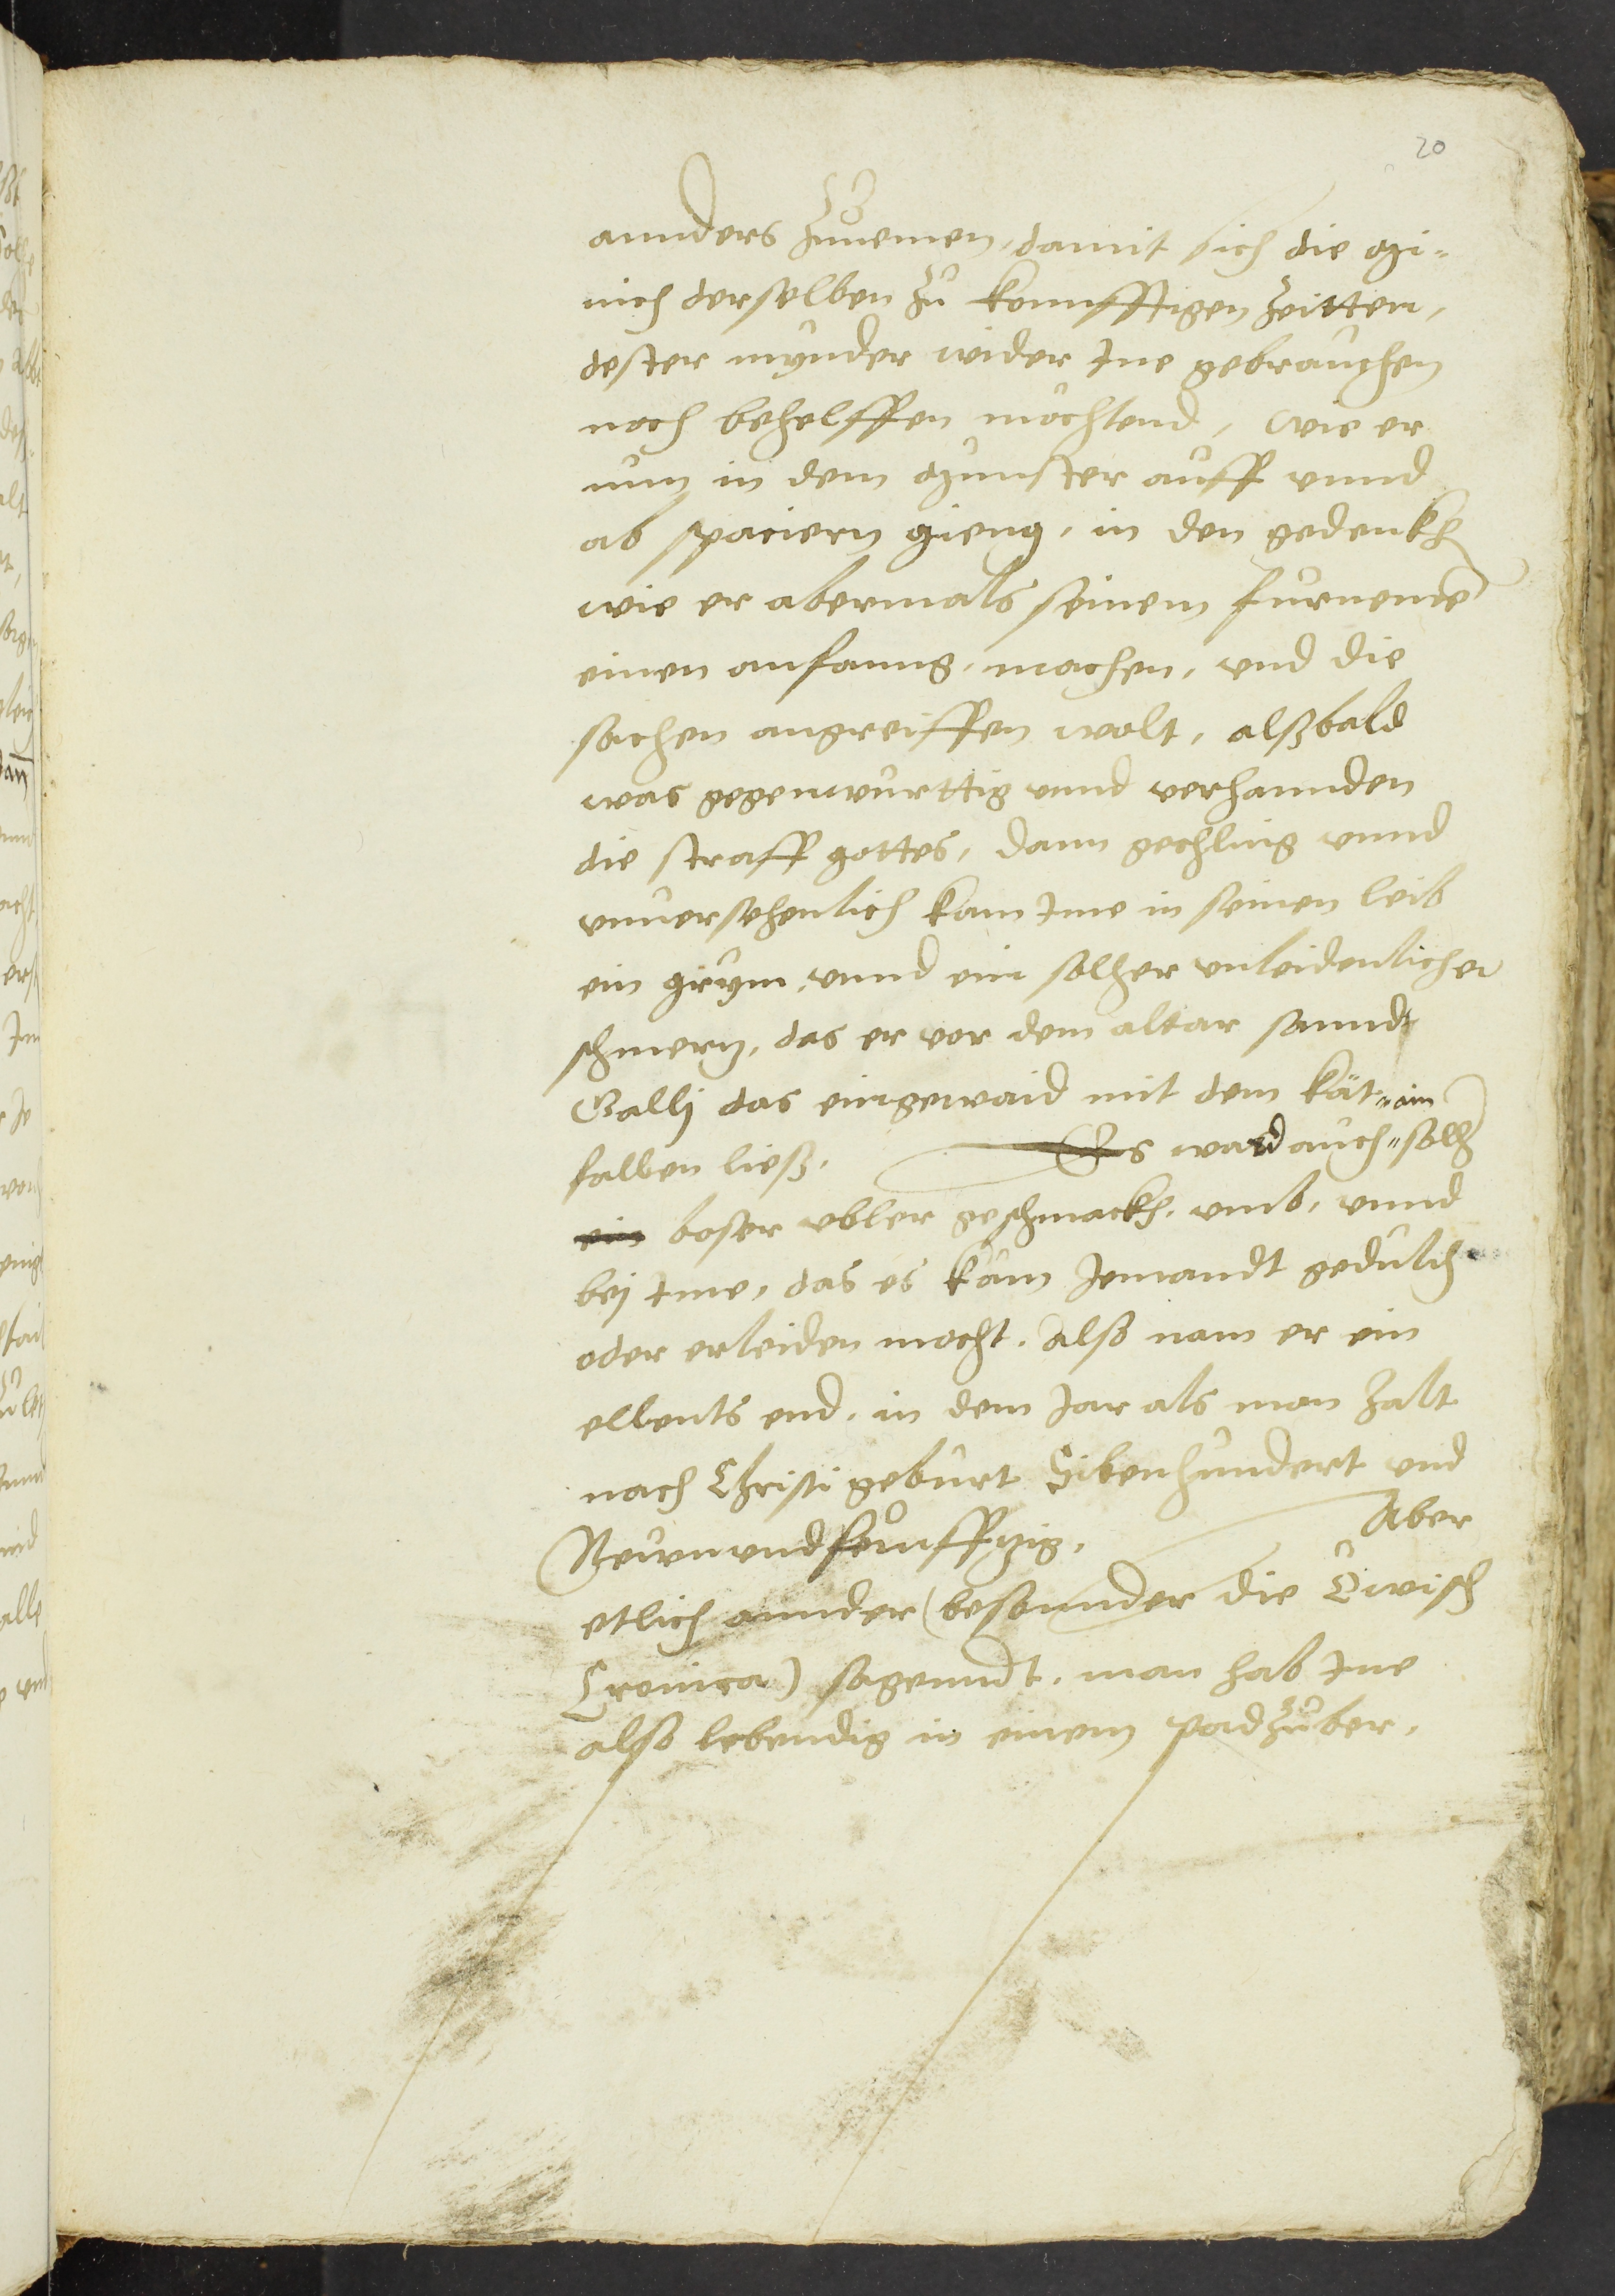 20
annders zunemen, damit sich die Mü-
nich derselben zu konnfftigen Zeitten,
dester mynder wider Ine gebrauchen
noch behelffen mochtend, wie er
nun in dem Munster auff vnnd
ab spaciern gieng, in den gedenkh
wie er abermals seinem furneme
einen anfanng, machen, vnd die
sachen angreiffen wolt, alßbald
was gegenwurttig vnnd verhannden
die straff gottes, dann gechling vnnd
vnuersehenlich kam Ime in seinen leib
ein grym, vnnd ein solher vnleidenlicher
schmerz, das er vor dem altar sanndt
Galli das eingewaid mit dem kät
fallen ließ. Es ward auch ain sollh
ein boser vbler geschmackh, vmb, vnnd
bej Ime, das es kam Jemandt geduldh
oder erleiden mocht. Also nam er ein
ellents end, in dem Jar als man Zalt
nach Christi geburt Sibenhundert vnd
Neunvndfeunffzig. Aber
etlich annder (besonnder die
Cronica) sagenndt, man hab Ine
also lebendig in einem padzuber,